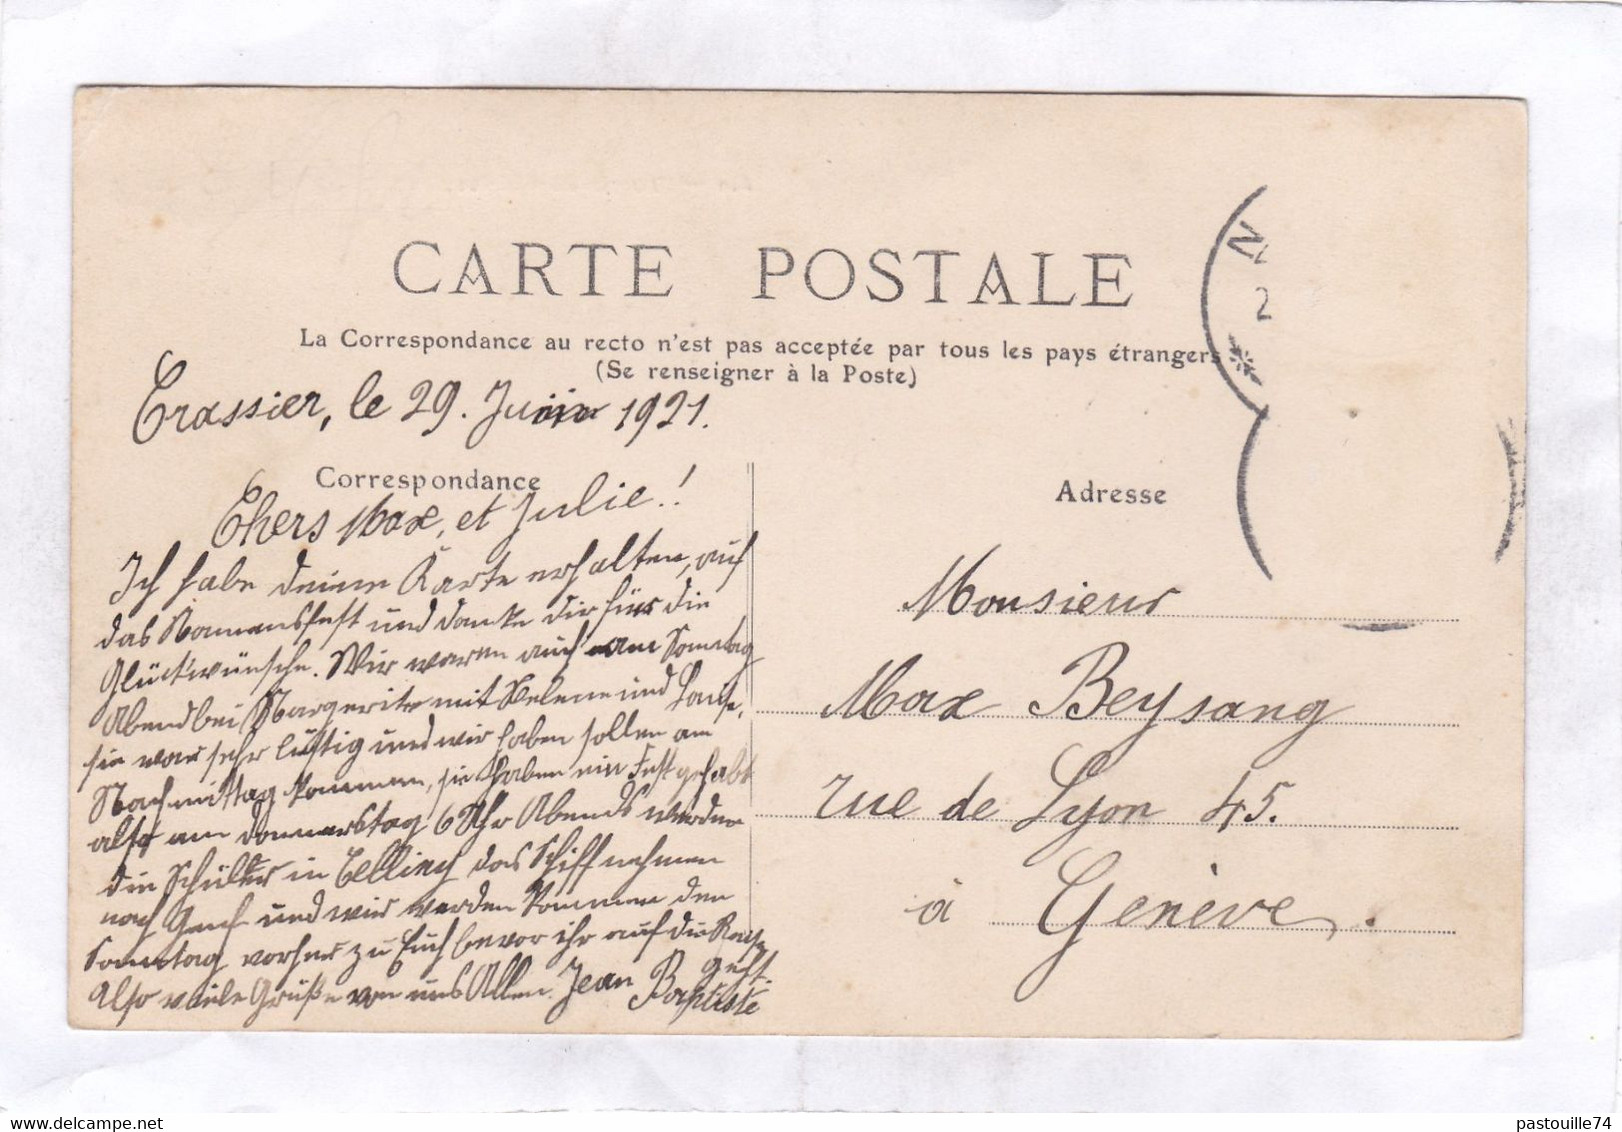 CARTE POSTALE
La Correspondance au recto n'est pas acceptée par tous les pays étrangers
(Se renseigner à la Poste)
Crassier, le 29. Juin 1921.
Correspondance
Chers Max, et Julie!
Ich habe deine Karte erhalten, auf
das Namensfest und danke dir für die
Glückwünsche. Wir waren auch am Sonntag
Abend bei Margerite mit Helene und
sie war sehr lustig und wir haben sollen am
Nachmittag kommen, sie haben ein Fest gehabt
also am Donnerstag 6 Uhr Abends werden
die Schüler in das Schiff nehmen
nach Genf und wir werden kommen den
Sonntag vorher zu Euch bevor ihr auf die Reise
geht.
Also viele Grüße von uns Allen. Jean
Baptiste
Adresse
Monsieur
Max Beysang
rue de Lyon 45.
à Genève.
N
2
pastouille74